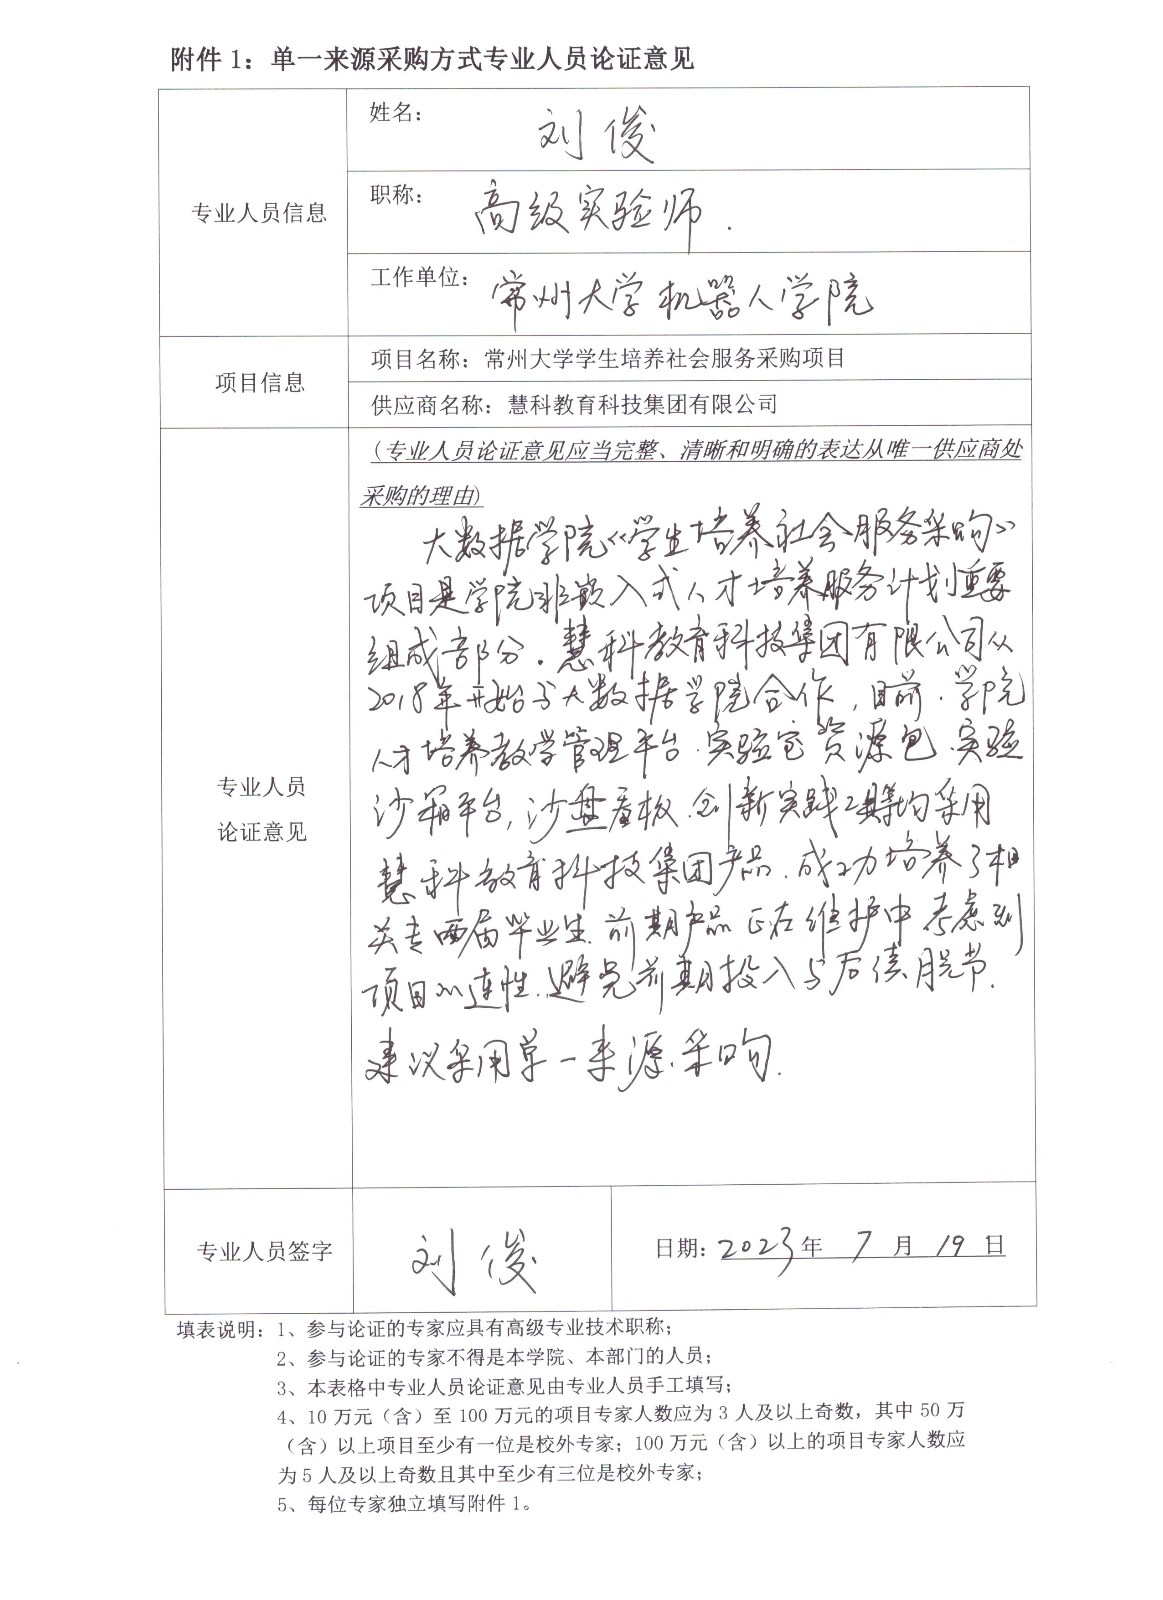 附件 1：单一来源采购方式专业人员论证意见
专业人员信息
姓名：
刘俊
职称：
高级实验师.
工作单位：
常州大学机器人学院
项目信息
项目名称：常州大学学生培养社会服务采购项目
供应商名称：慧科教育科技集团有限公司
专业人员
论证意见
(专业人员论证意见应当完整、清晰和明确的表达从唯一供应商处
采购的理由)
大数据学院《学生培养社会服务采购》
项目是学院非嵌入式人才培养服务计划重要
组成部分。慧科教育科技集团有限公司从
2018年开始与大数据学院合作，目前.学院
人才培养教学管理平台.实验室资源包.实验
沙箱平台,沙盘看板.创新实践工具等均采用
慧科教育科技集团产品.成功培养了相
关专两届毕业生.前期产品正在维护中考虑到
项目的连性.避免前期投入与后续脱节.
建议采用单一来源.采购.
专业人员签字
刘俊
日期：2023年 7 月 19 日
填表说明：1、参与论证的专家应具有高级专业技术职称；
2、参与论证的专家不得是本学院、本部门的人员；
3、本表格中专业人员论证意见由专业人员手工填写；
4、10 万元（含）至 100 万元的项目专家人数应为 3 人及以上奇数，其中 50 万
（含）以上项目至少有一位是校外专家；100 万元（含）以上的项目专家人数应
为 5 人及以上奇数且其中至少有三位是校外专家；
5、每位专家独立填写附件 1。